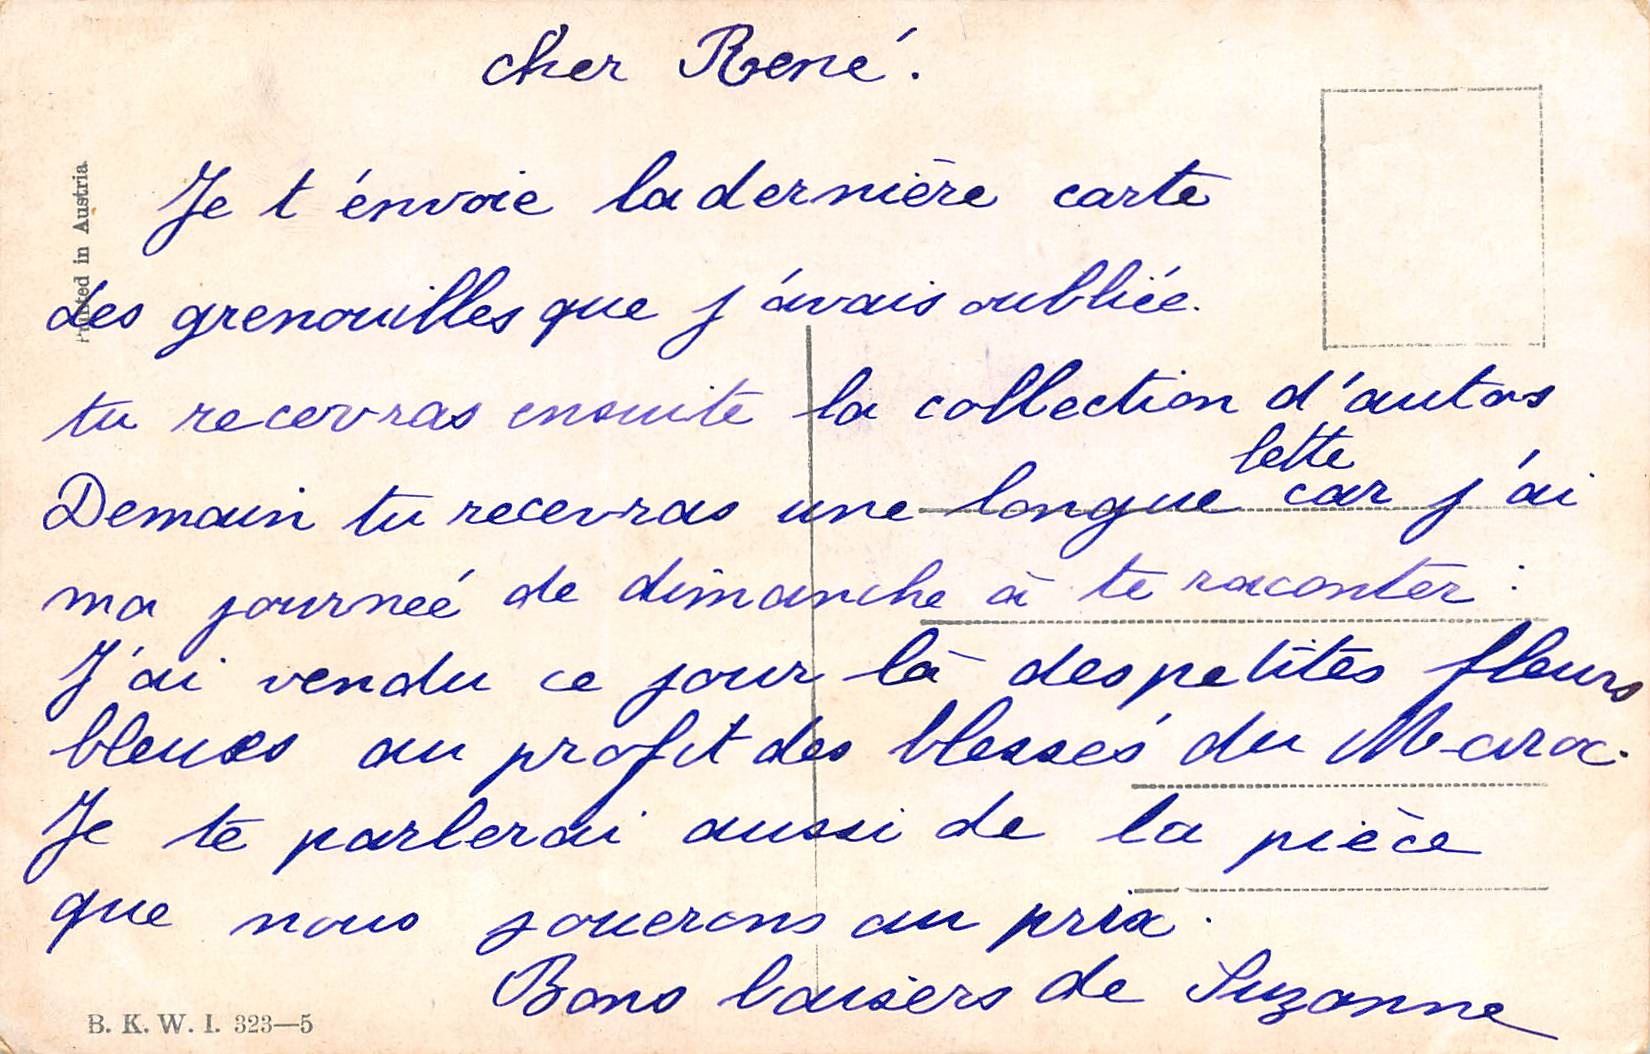 cher René.
Je t'énvoie la dernière carte
des grenouilles que j'avais oubliée.
tu recevras ensuite la collection d'autos
lette
Demain tu recevras une longue car j'ai
ma journeé de dimanche à te raconter :
J'ai vendu ce jour là des petites fleurs
bleues au profit des blessés du Maroc.
Je te parlerai aussi de la pièce
que nous jouerons au prix.
Bons baisers de Suzanne
Printed in Austria
B. K. W. I. 323—5